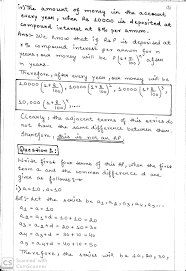 iv) The amount of money in the account
every year, when Rs 10000 is deposited at
compound interest at 8% per annum.
Ans:- We know that if Rs P is deposited at
r% compound interest per annum for n
years, our money will be P(1+r/100)ⁿ after
n years.
Therefore, after every year, our money will be
10000(1+8/100), 10000(1+8/100)², 10000(1+8/100)³,
10,000(1+8/100)⁴, ...
Clearly, the adjacent terms of this series do
not have the same difference between them.
Therefore, this is not an AP.
Question 2:
Write first four terms of the AP, when the first
term a and the common difference d are
given as follows:-
i) a=10, d=10
Let the series be a₁, a₂, a₃, a₄, ...
a₁ = 10
a₂ = a₁+d = 10+10 = 20
a₃ = a₂+d = 20+10 = 30
a₄ = a₃+d = 30+10 = 40
a₅ = a₄+d = 40+10 = 50
Therefore, the series will be 10, 20, 30,
CS
Scanned with
CamScanner